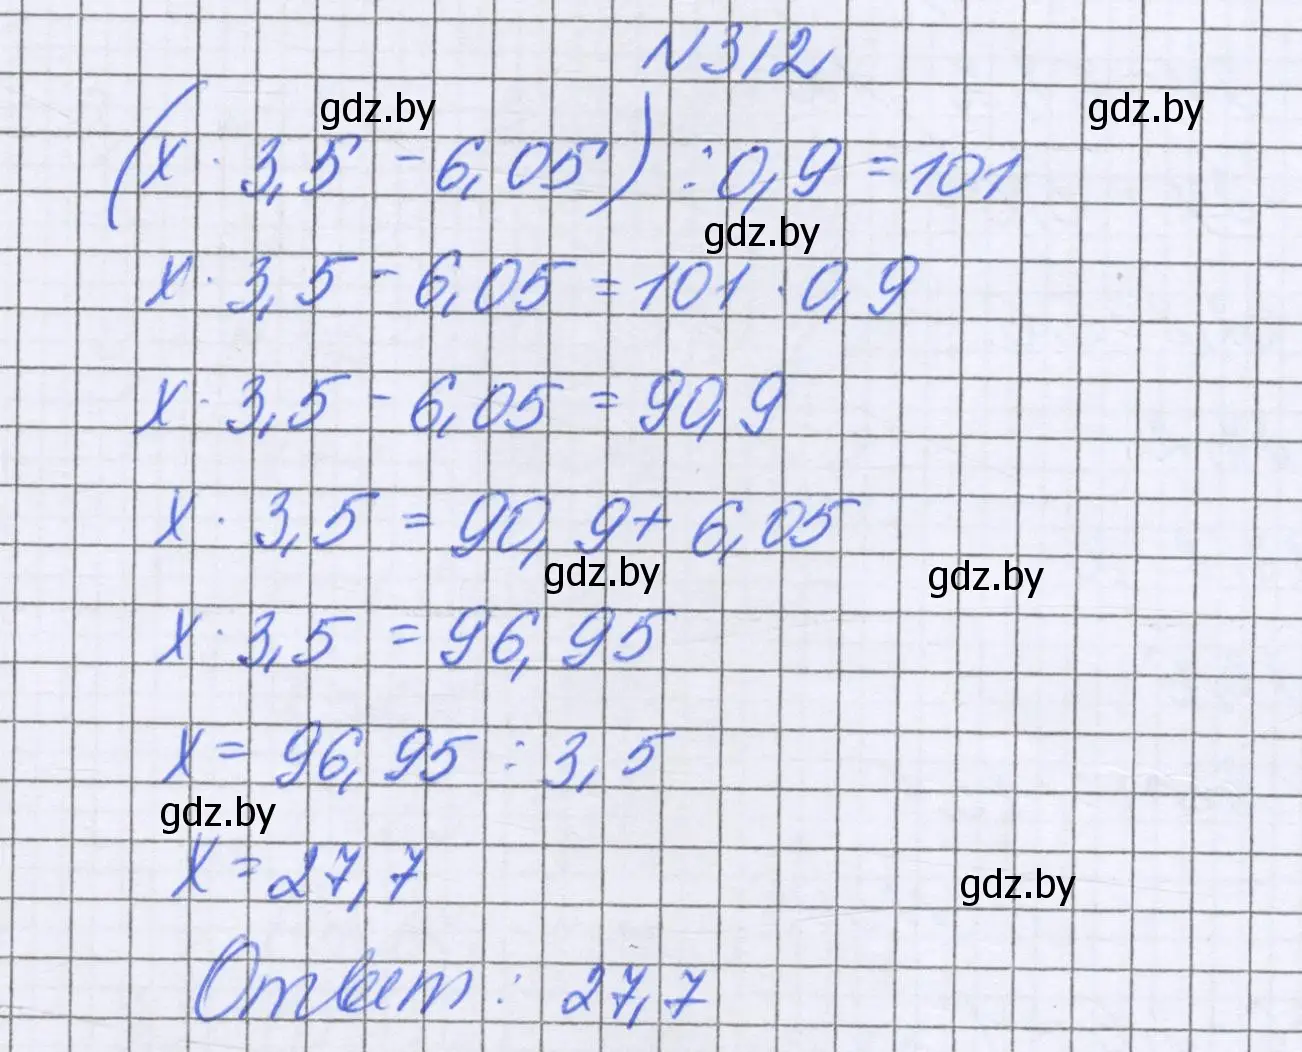 N312
gdz.by gdz.by
(x · 3,5 - 6,05) : 0,9 = 101
gdz.by
x · 3,5 - 6,05 = 101 · 0,9
x · 3,5 - 6,05 = 90,9
x · 3,5 = 90,9 + 6,05
gdz.by gdz.by
x · 3,5 = 96,95
x = 96,95 : 3,5
gdz.by
x = 27,7
gdz.by
Ответ : 27,7